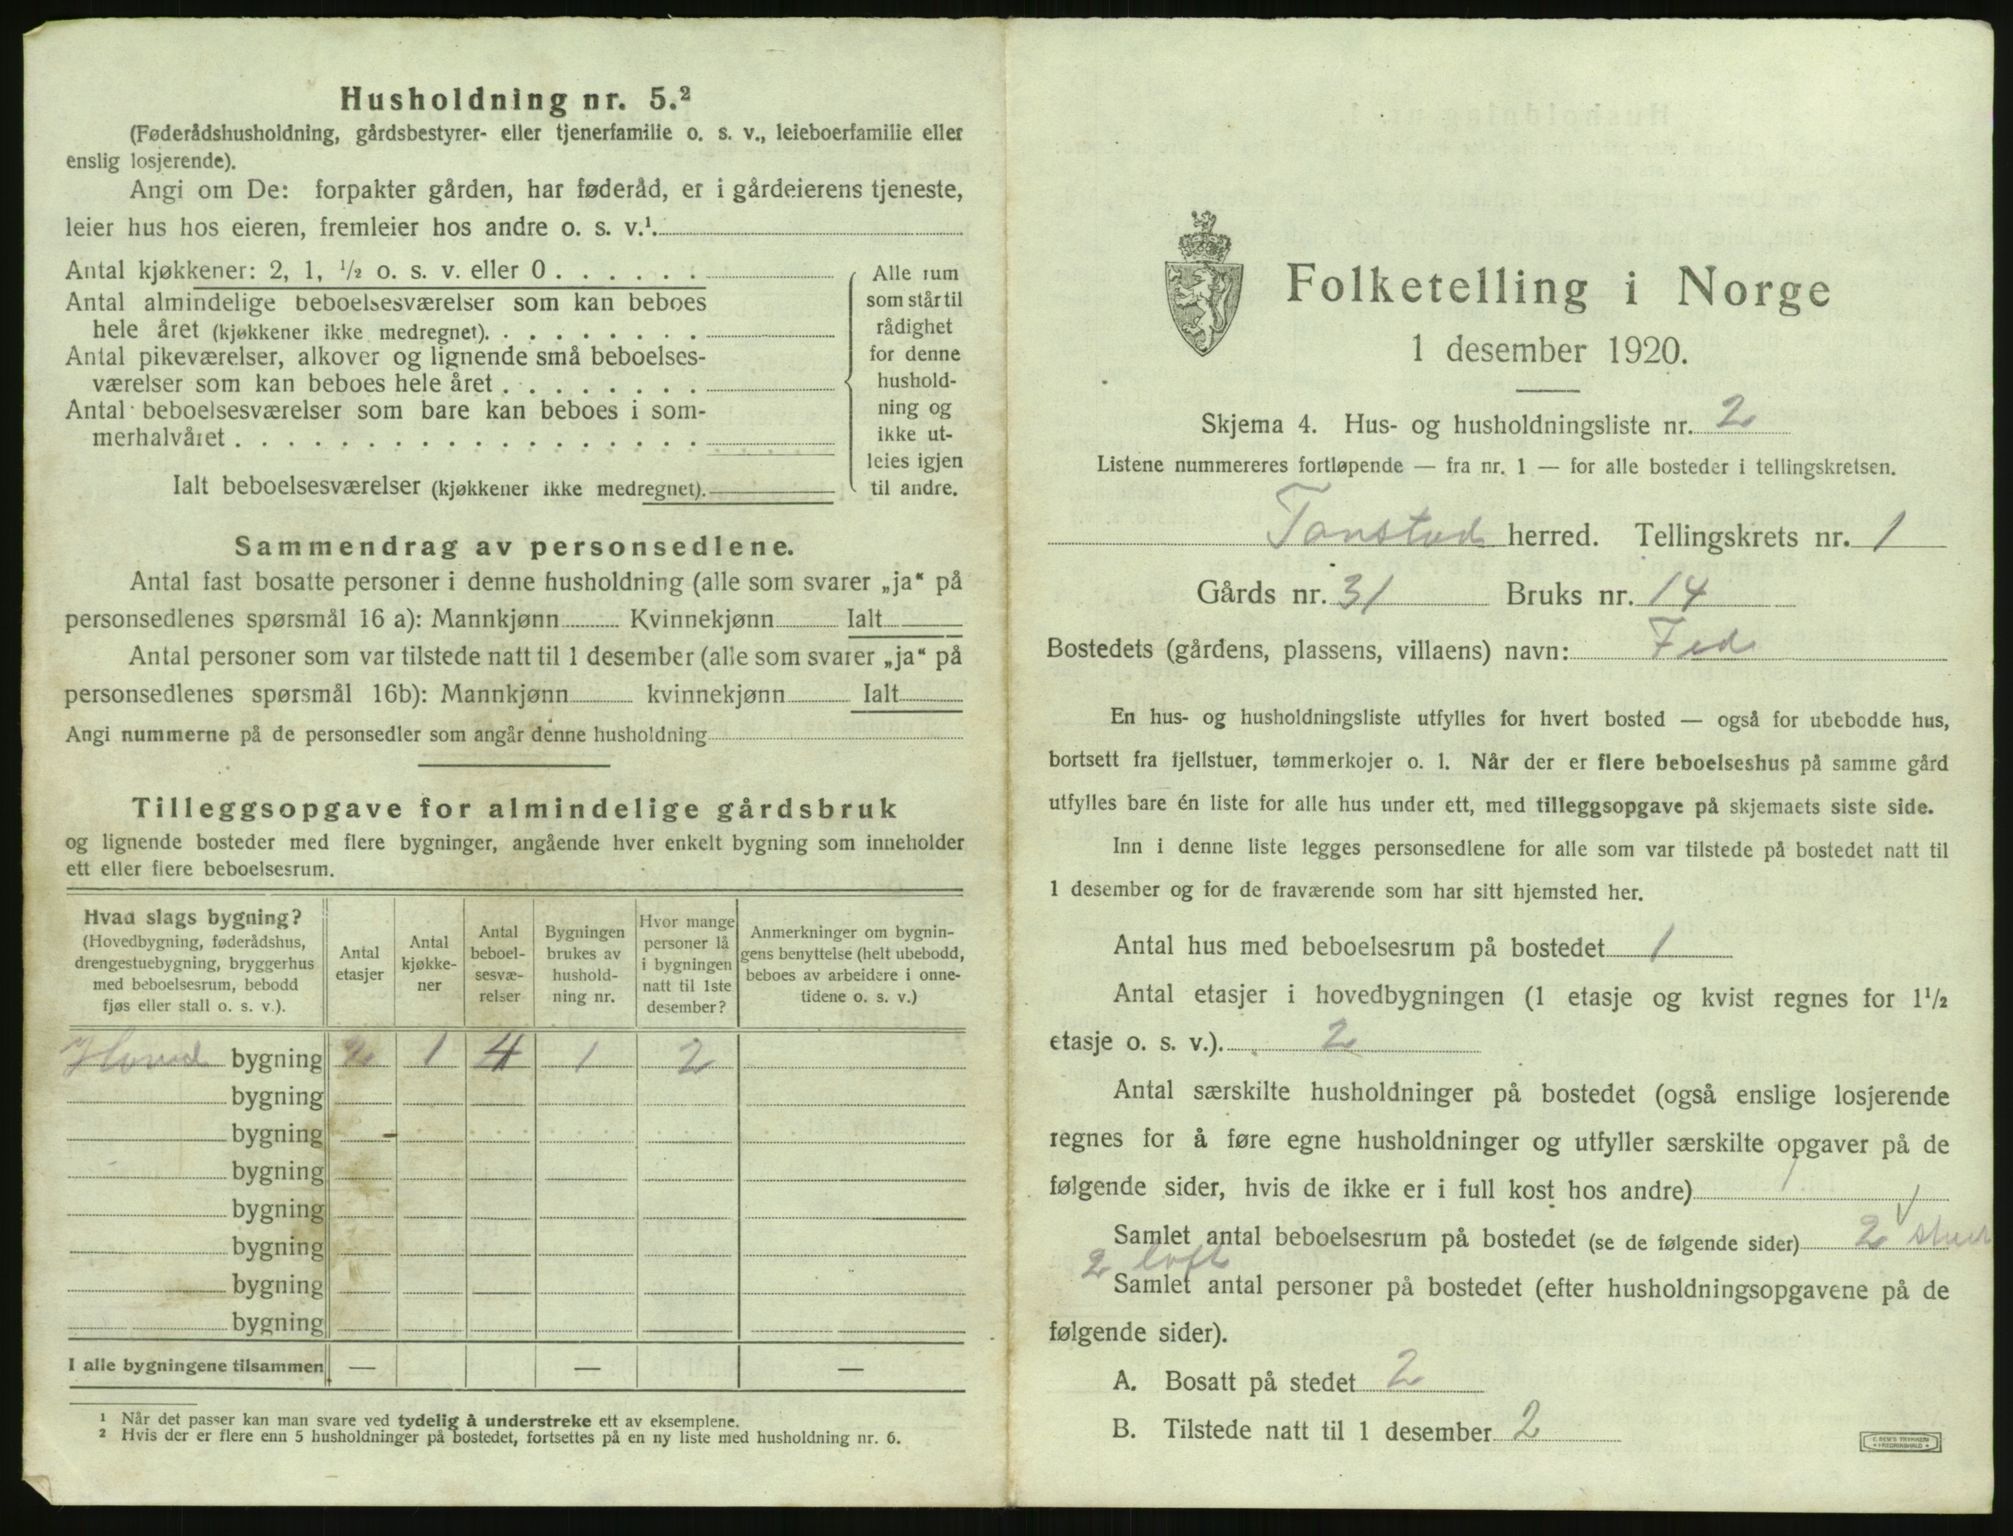 Husholdning nr. 5.²
(Føderådshusholdning, gårdsbestyrer- eller tjenerfamilie o. s. v., leieboerfamilie eller
enslig losjerende).
Angi om De: forpakter gården, har føderåd, er i gårdeierens tjeneste,
leier hus hos eieren, fremleier hos andre o. s. v.¹.
Antal kjøkkener: 2, 1, ½ o. s. v. eller 0 . . . . . .
Antal almindelige beboelsesværelser som kan beboes
hele året (kjøkkener ikke medregnet). . . . . . . . .
Antal pikeværelser, alkover og lignende små beboelses-
værelser som kan beboes hele året . . . . . . . .
Antal beboelsesværelser som bare kan beboes i som-
merhalvåret . . . . . . . . . . . . . . . . . .
Ialt beboelsesværelser (kjøkkener ikke medregnet).
Alle rum
som står til
rådighet
for denne
hushold-
ning og
ikke ut-
leies igjen
til andre.
Sammendrag av personsedlene.
Antal fast bosatte personer i denne husholdning (alle som svarer „ja“ på
personsedlenes spørsmål 16 a): Mannkjønn Kvinnekjønn Ialt
Antal personer som var tilstede natt til 1 desember (alle som svarer „ja“ på
personsedlenes spørsmål 16b): Mannkjønn kvinnekjønn Ialt
Angi nummerne på de personsedler som angår denne husholdning
Tilleggsopgave for almindelige gårdsbruk
og lignende bosteder med flere bygninger, angående hver enkelt bygning som inneholder
ett eller flere beboelsesrum.
Hvad slags bygning?
(Hovedbygning, føderådshus,
drengestuebygning, bryggerhus
med beboelsesrum, bebodd
fjøs eller stall o. s. v.).
Antal
etasjer
Antal
kjøkke-
ner
Antal
beboel-
sesvæ-
relser
Bygningen
brukes av
hushold-
ning nr.
Hvor mange
personer lå
i bygningen
natt til 1ste
desember?
Anmerkninger om bygnin-
gens benyttelse (helt ubebodd,
beboes av arbeidere i onne-
tidene o. s. v.)
Hoved bygning 2 1 4 1 2
bygning
bygning
bygning
bygning
bygning
bygning
bygning
I alle bygningene tilsammen — — —
¹ Når det passer kan man svare ved tydelig å understreke ett av eksemplene.
² Hvis der er flere enn 5 husholdninger på bostedet, fortsettes på en ny liste med husholdning nr. 6.
Folketelling i Norge
1 desember 1920.
Skjema 4. Hus- og husholdningsliste nr. 2
Listene nummereres fortløpende — fra nr. 1 — for alle bosteder i tellingskretsen.
Tonstad herred. Tellingskrets nr. 1
Gårds nr. 31 Bruks nr. 14
Bostedets (gårdens, plassens, villaens) navn: Fed
En hus- og husholdningsliste utfylles for hvert bosted — også for ubebodde hus,
bortsett fra fjellstuer, tømmerkojer o. l. Når der er flere beboelseshus på samme gård
utfylles bare én liste for alle hus under ett, med tilleggsopgave på skjemaets siste side.
Inn i denne liste legges personsedlene for alle som var tilstede på bostedet natt til
1 desember og for de fraværende som har sitt hjemsted her.
Antal hus med beboelsesrum på bostedet 1
Antal etasjer i hovedbygningen (1 etasje og kvist regnes for 1½
etasje o. s. v.). 2
Antal særskilte husholdninger på bostedet (også enslige losjerende
regnes for å føre egne husholdninger og utfyller særskilte opgaver på de
følgende sider, hvis de ikke er i full kost hos andre) 1
Samlet antal beboelsesrum på bostedet (se de følgende sider) 2
2 loft
Samlet antal personer på bostedet (efter husholdningsopgavene på de
følgende sider).
A. Bosatt på stedet 2
B. Tilstede natt til 1 desember 2